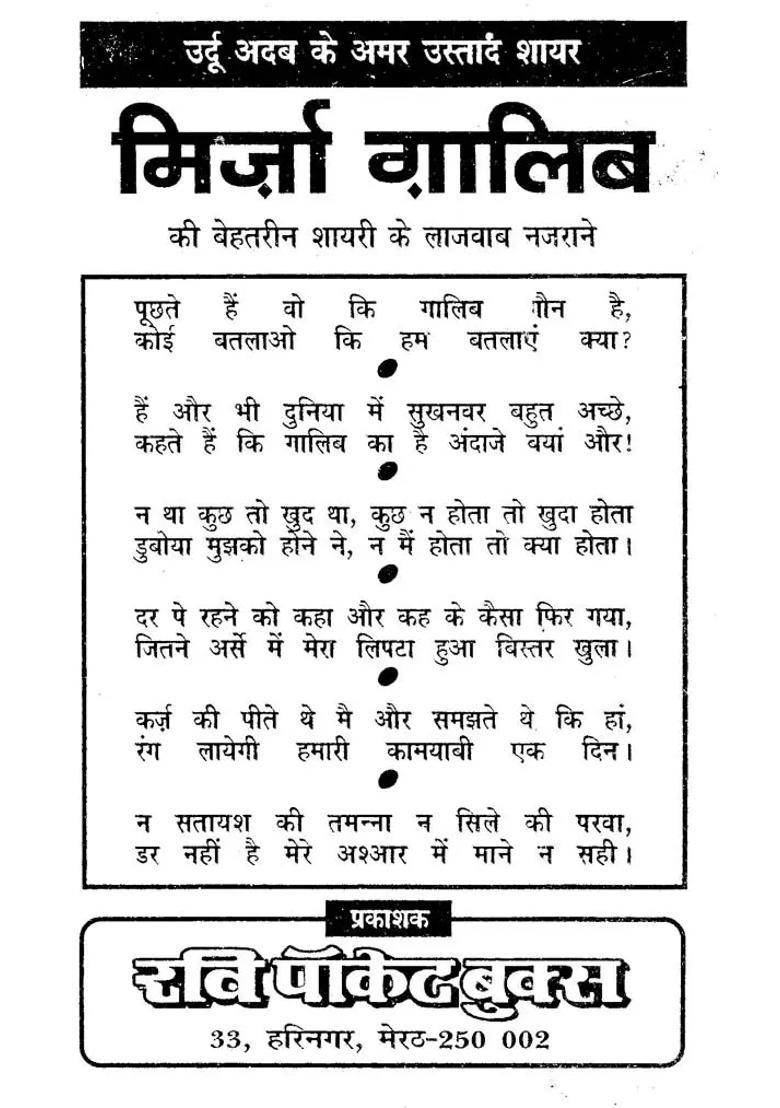 उर्दू अदब के अमर उस्ताद शायर
मिर्ज़ा ग़ालिब
की बेहतरीन शायरी के लाजवाब नजराने
पूछते हैं वो कि गालिब गौन है,
कोई बतलाओ कि हम बतलाएं क्या?
हैं और भी दुनिया में सुखनवर बहुत अच्छे,
कहते हैं कि गालिब का है अंदाजे वयां और!
न था कुछ तो खुद था, कुछ न होता तो खुदा होता
डुबोया मुझको होने ने, न मैं होता तो क्या होता।
दर पे रहने को कहा और कह के कैसा फिर गया,
जितने अर्से में मेरा लिपटा हुआ विस्तर खुला।
कर्ज़ की पीते थे मै और समझते थे कि हां,
रंग लायेगी हमारी कामयाबी एक दिन।
न सतायश की तमन्ना न सिले की परवा,
डर नहीं है मेरे अश्आर में माने न सही।
प्रकाशक
रवि पॉकेट बुक्स
33, हरिनगर, मेरठ-250 002